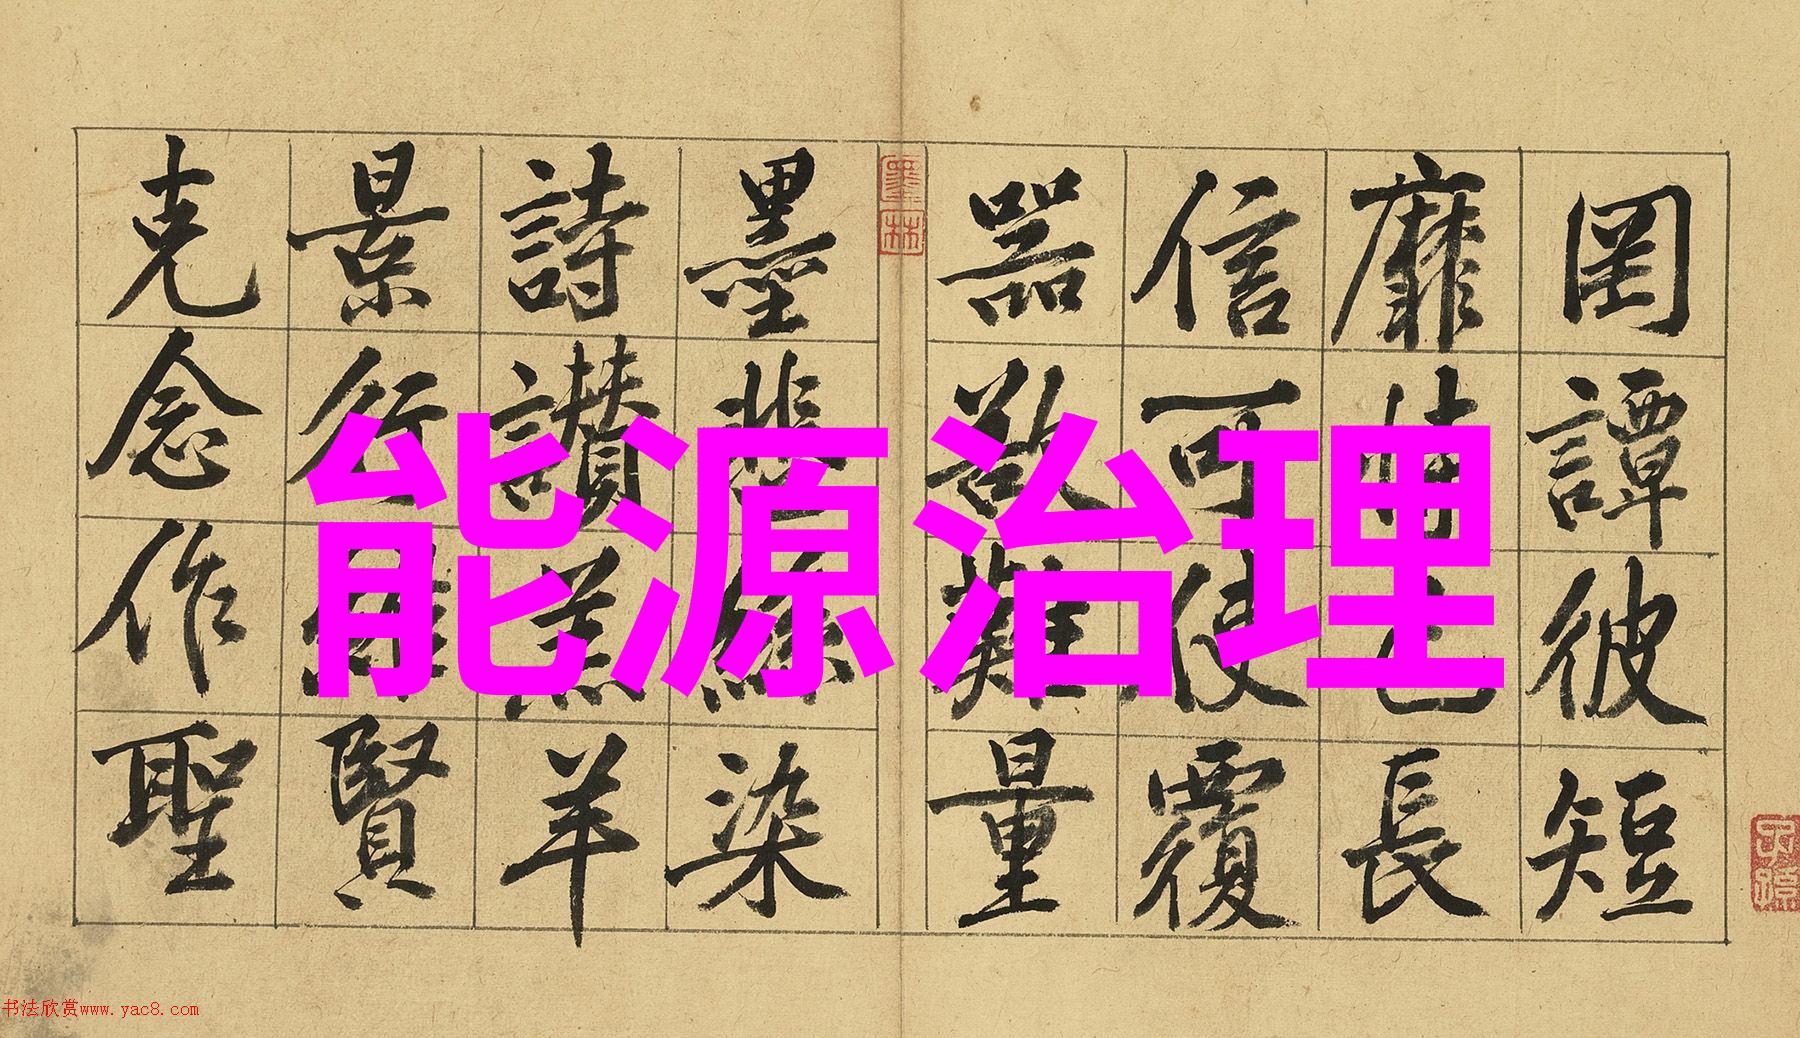 罔譚彼短
靡恃己長
信可使覆
器欲難量
墨林
墨悲絲染
詩讚羔羊
景行維賢
克念作聖
能源治理
书法欣赏www.yac8.com